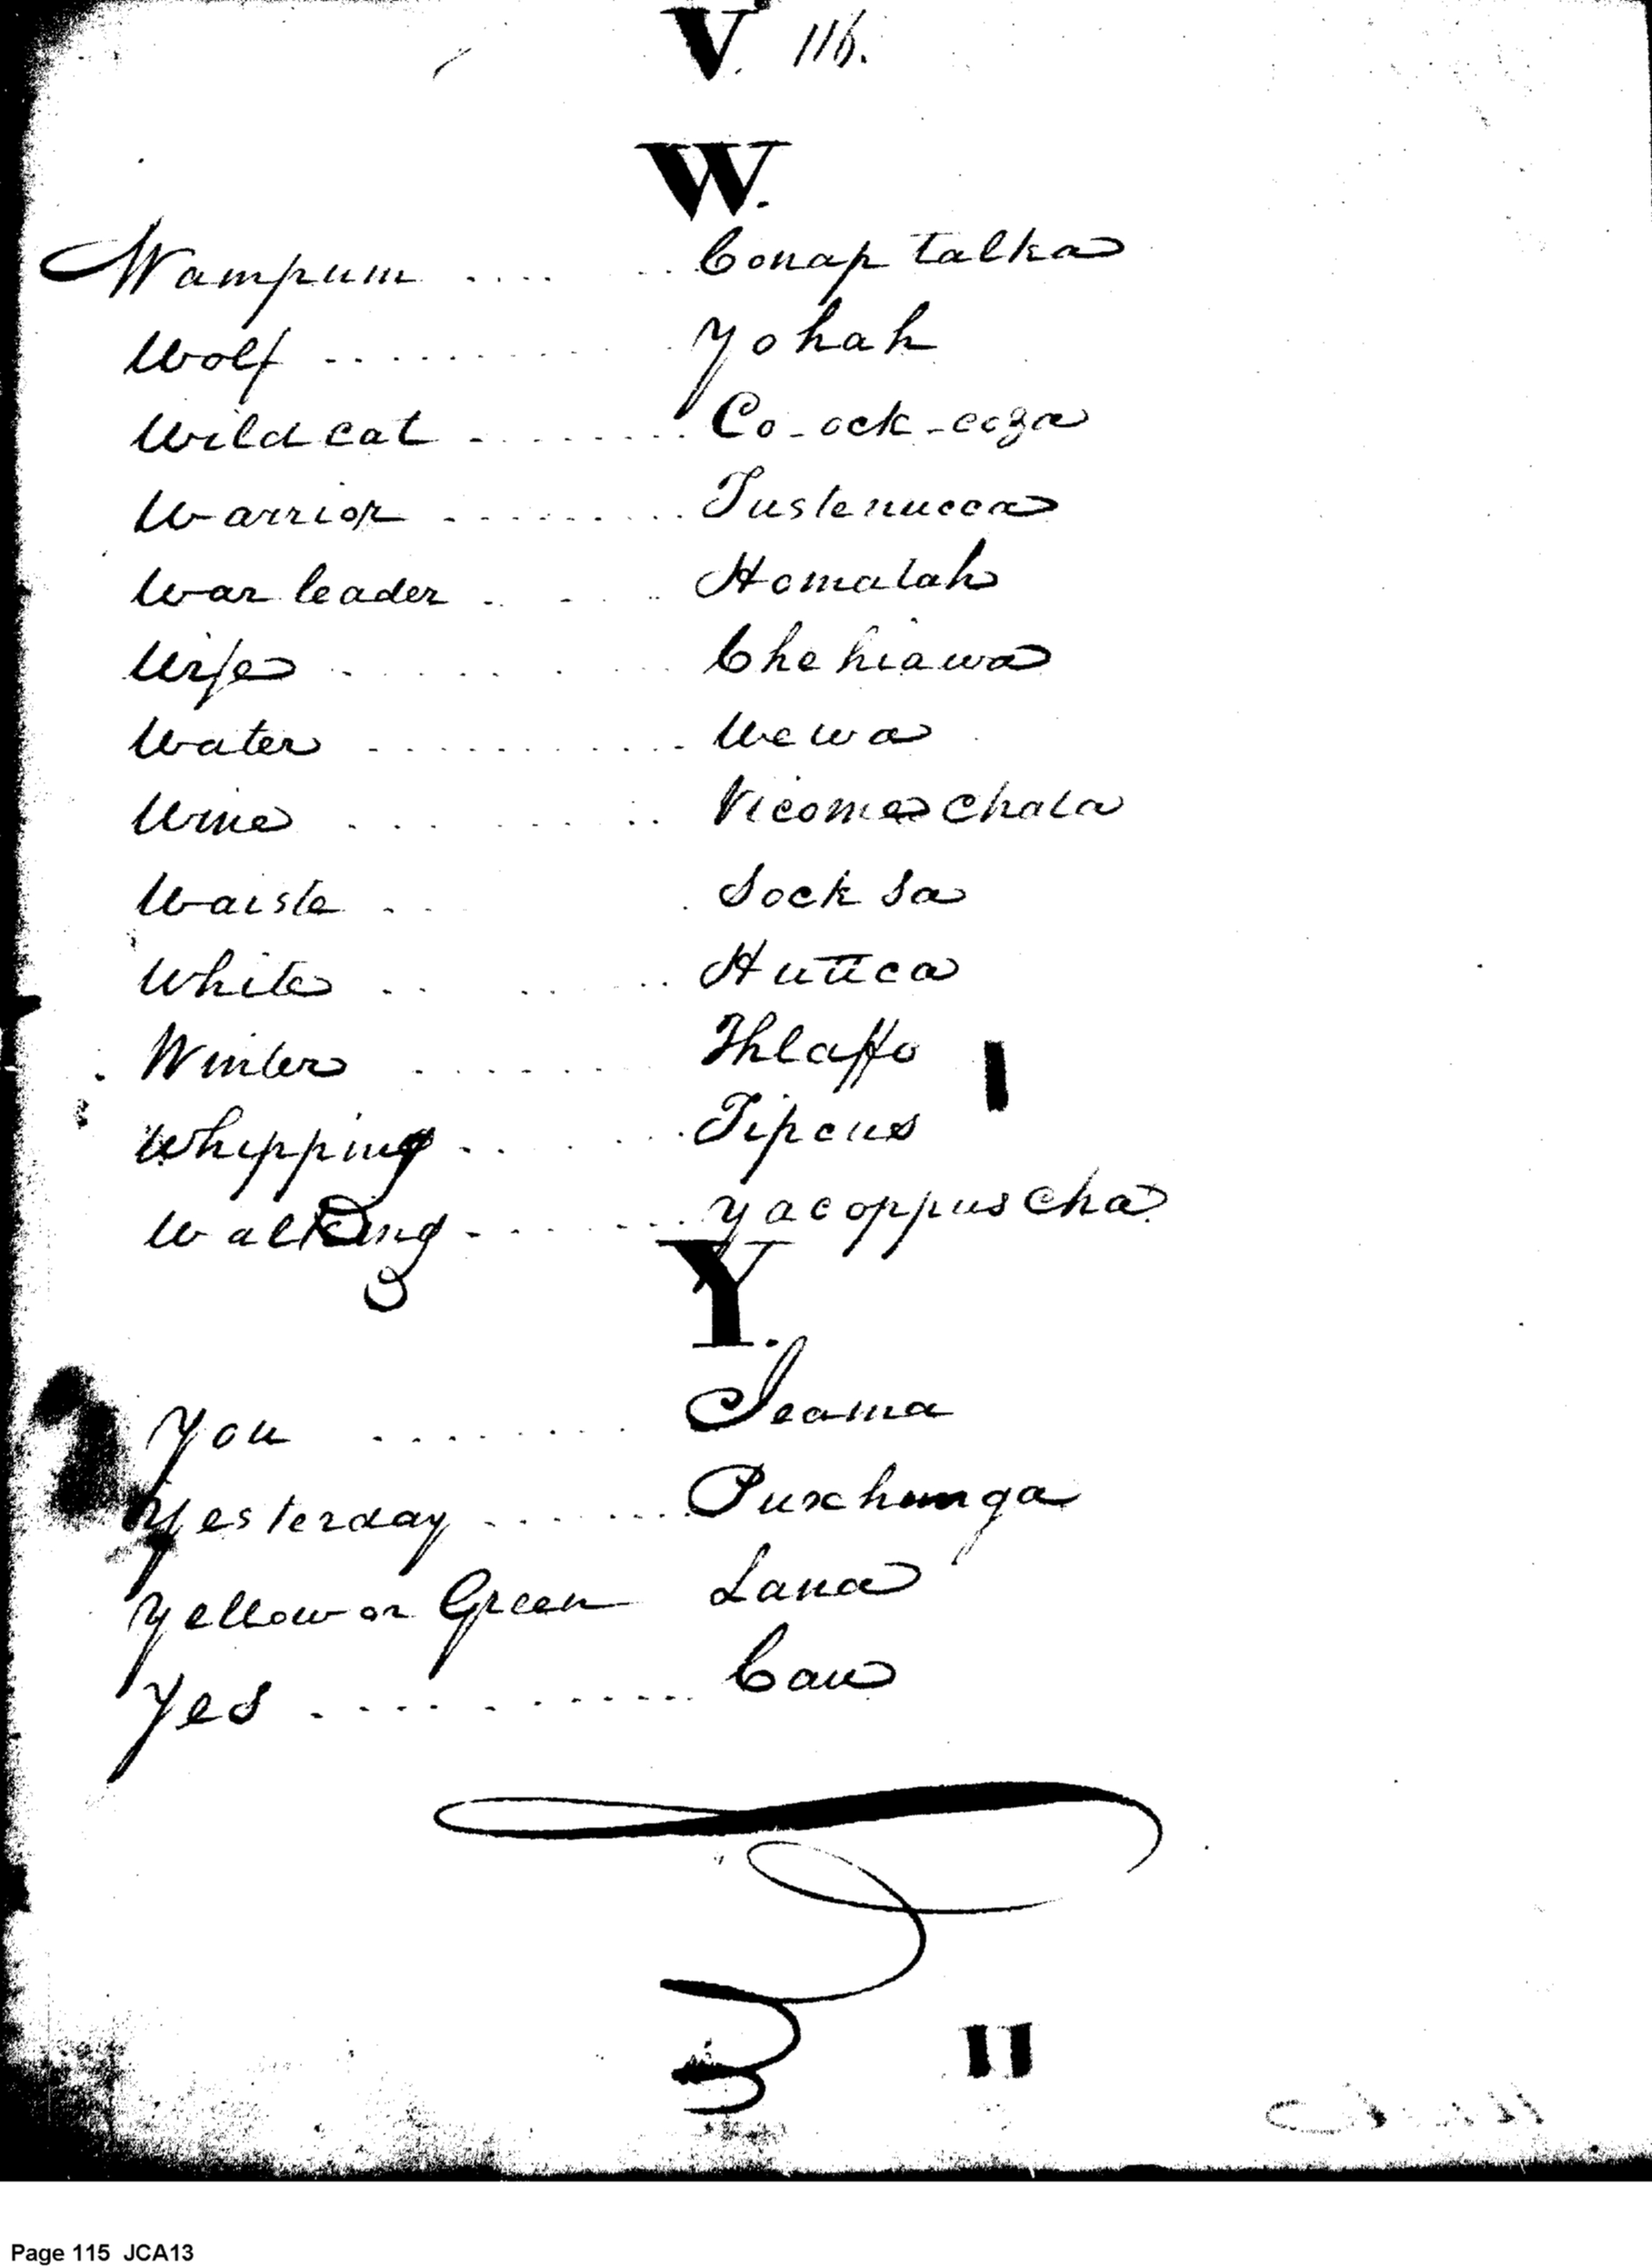 V. 116.
W.
Wampum .... .. Conap talka
Wolf .......... Yohah
Wild cat ........ Co-ock-coza
Warrior ......... Tustenucca
War leader . . .. Homatah
Wife ........ Chehiawa
Water ........... Wewa
Wine ......... Vicome chata
Waiste .. . Sock sa
White .. ...... Huttca
Winter ....... Thlaffo
Whipping ....... Tipcus
Walking ........ Yacoppuscha
Y.
You ........ Seama
Yesterday ....... Puxhunga
Yellow or Green Lana
Yes ........... Cau
Page 115 JCA13